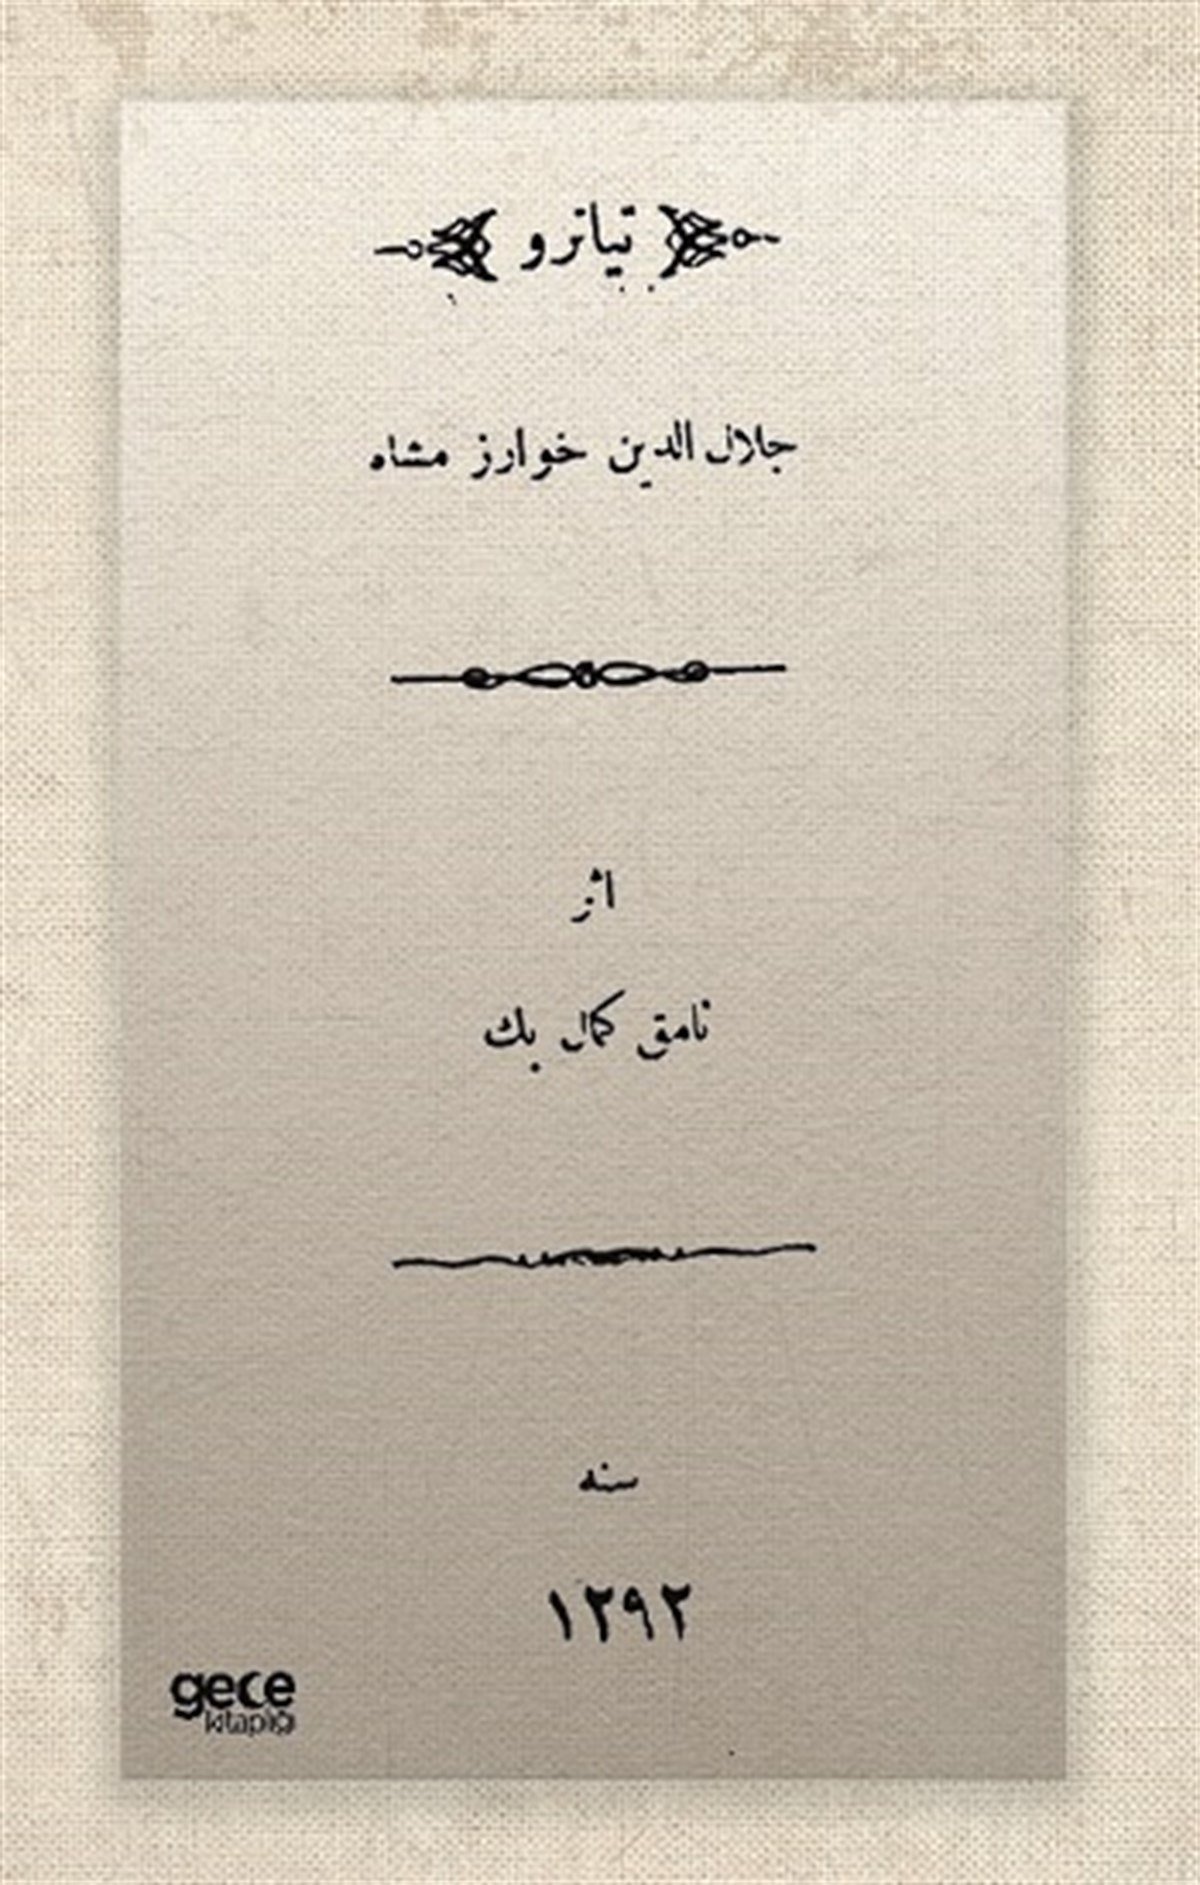 تیاترو
جلال الدین خوارز مشاه
اثر
نامق کمال بك
سنه
١٢٩٢
gece
kitaplığı